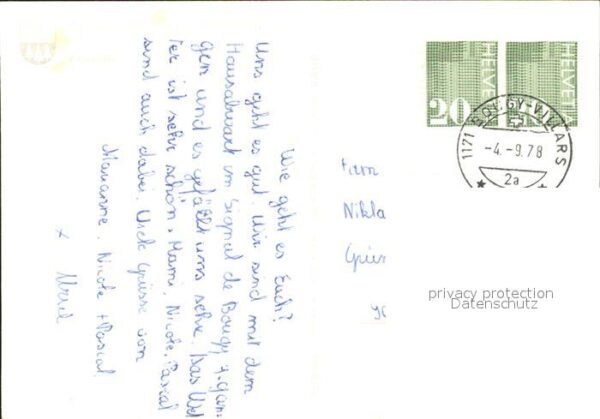 Wie geht es Euch?
Uns geht es gut. Wir sind mit dem
Hausabwart im Signal de Bougy
gen und es gefällt uns sehr. Das Wet
ter ist sehr schön. Mami, Nicole, Pascal
sind auch dabei. Viele Grüsse von
Marianne, Nicole + Pascal
Fam
Nikla
20
HELVET
HELVET
1171 BOUGY-VILLARS
-4.-9.78
2a
privacy protection
Datenschutz